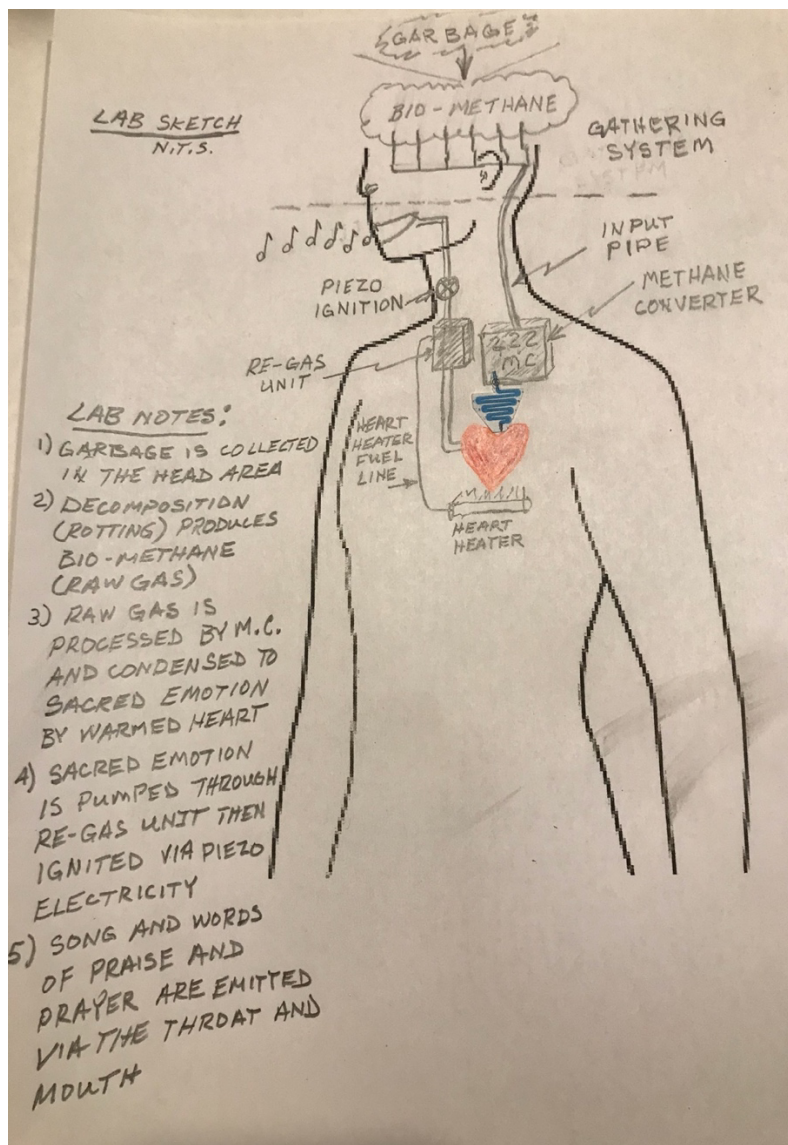 GARBAGE
LAB SKETCH
N.T.S.
BIO-METHANE
GATHERING
SYSTEM
INPUT
PIPE
PIEZO
IGNITION
METHANE
CONVERTER
222
MC
RE-GAS
UNIT
HEART
HEATER
FUEL
LINE
HEART
HEATER
LAB NOTES:
1) GARBAGE IS COLLECTED
IN THE HEAD AREA
2) DECOMPOSITION
(ROTTING) PRODUCES
BIO-METHANE
(RAW GAS)
3) RAW GAS IS
PROCESSED BY M.C.
AND CONDENSED TO
SACRED EMOTION
BY WARMED HEART
4) SACRED EMOTION
IS PUMPED THROUGH
RE-GAS UNIT THEN
IGNITED VIA PIEZO
ELECTRICITY
5) SONG AND WORDS
OF PRAISE AND
PRAYER ARE EMITTED
VIA THE THROAT AND
MOUTH